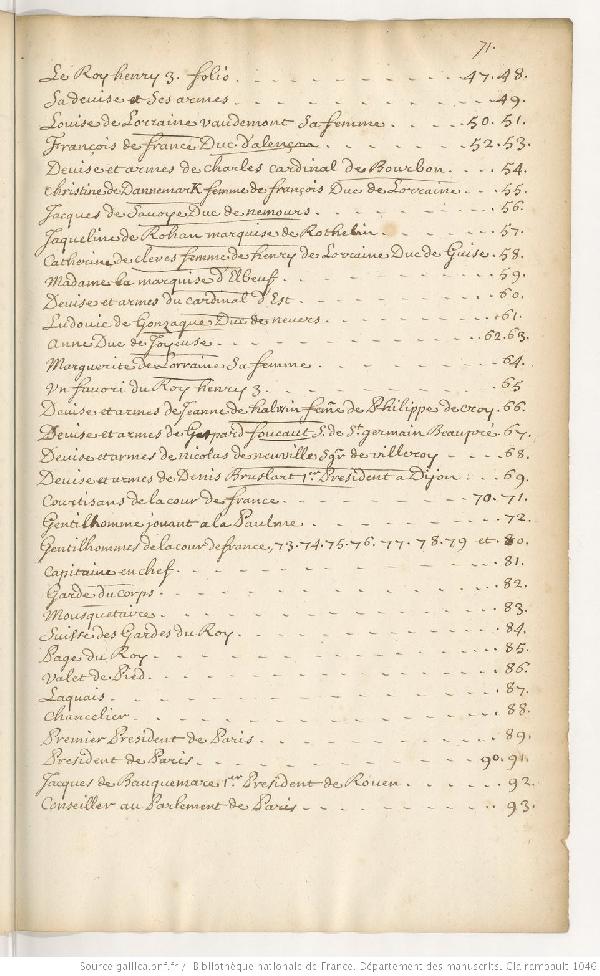 71.
Le Roy henry 3. folio . . . . . . . . . . . 47. 48.
Sa deuise et Ses armes . . . . . . . . . . . 49.
Louise de Lorraine vaudemont Sa femme . . . . 50. 51.
François de france Duc d'alençon . . . . . . . 52. 53.
Deuise et armes de charles cardinal de Bourbon . . . . 54.
christine de Dannemark femme de françois Duc de Lorraine . . . 55.
Jacques de Sauoye Duc de nemours . . . . . . . 56.
Jaqueline de Rohan marquise de Rothelin . . . . . . 57.
Catherine de cleves femme de henry de Lorraine Duc de Guise . 58.
Madame la marquise d'Elbeuf . . . . . . . . 59.
Deuise et armes du cardinal d'Est . . . . . . . . 60.
Ludouic de Gonzague Duc de neuers . . . . . . . 61.
Anne Duc de Joyeuse . . . . . . . . . . 62. 63.
Marguerite de Lorraine Sa femme . . . . . . . . 64.
Vn fauori du Roy henry 3. . . . . . . . . . 65
Deuise et armes de Jeanne de halwin fem̃e de Philippes de croy . 66.
Deuise et armes de Gaspard foucaut S. de St. germain Beaupré . 67.
Deuise et armes de nicolas de neuuille Sgr. de villeroy . . . . 68.
Deuise et armes de Denis Bruslart 1er. President a Dijon . . . 69.
Courtisans de la cour de france . . . . . . . . 70. 71.
Gentilhomme jouant a la Paulme . . . . . . . . . 72.
Gentilhommes de la cour de france, 73. 74. 75. 76. 77. 78. 79 et 80.
Capitaine en chef . . . . . . . . . . . . 81.
Garde du corps . . . . . . . . . . . . 82.
Mousquetaire . . . . . . . . . . . . 83.
Suisse des Gardes du Roy . . . . . . . . . . 84.
Page du Roy . . . . . . . . . . . . 85.
Valet de Pied . . . . . . . . . . . . 86.
Laquais . . . . . . . . . . . . . 87.
Chancelier . . . . . . . . . . . . 88.
Premier President de Paris . . . . . . . . . . 89.
President de Paris . . . . . . . . . . 90. 91.
Jacques de Bauquemare 1er. President de Rouen . . . . . 92.
Conseiller au Parlement de Paris . . . . . . . . . 93.
Source gallica.bnf.fr / Bibliothèque nationale de France. Département des manuscrits. Clairambault 1046